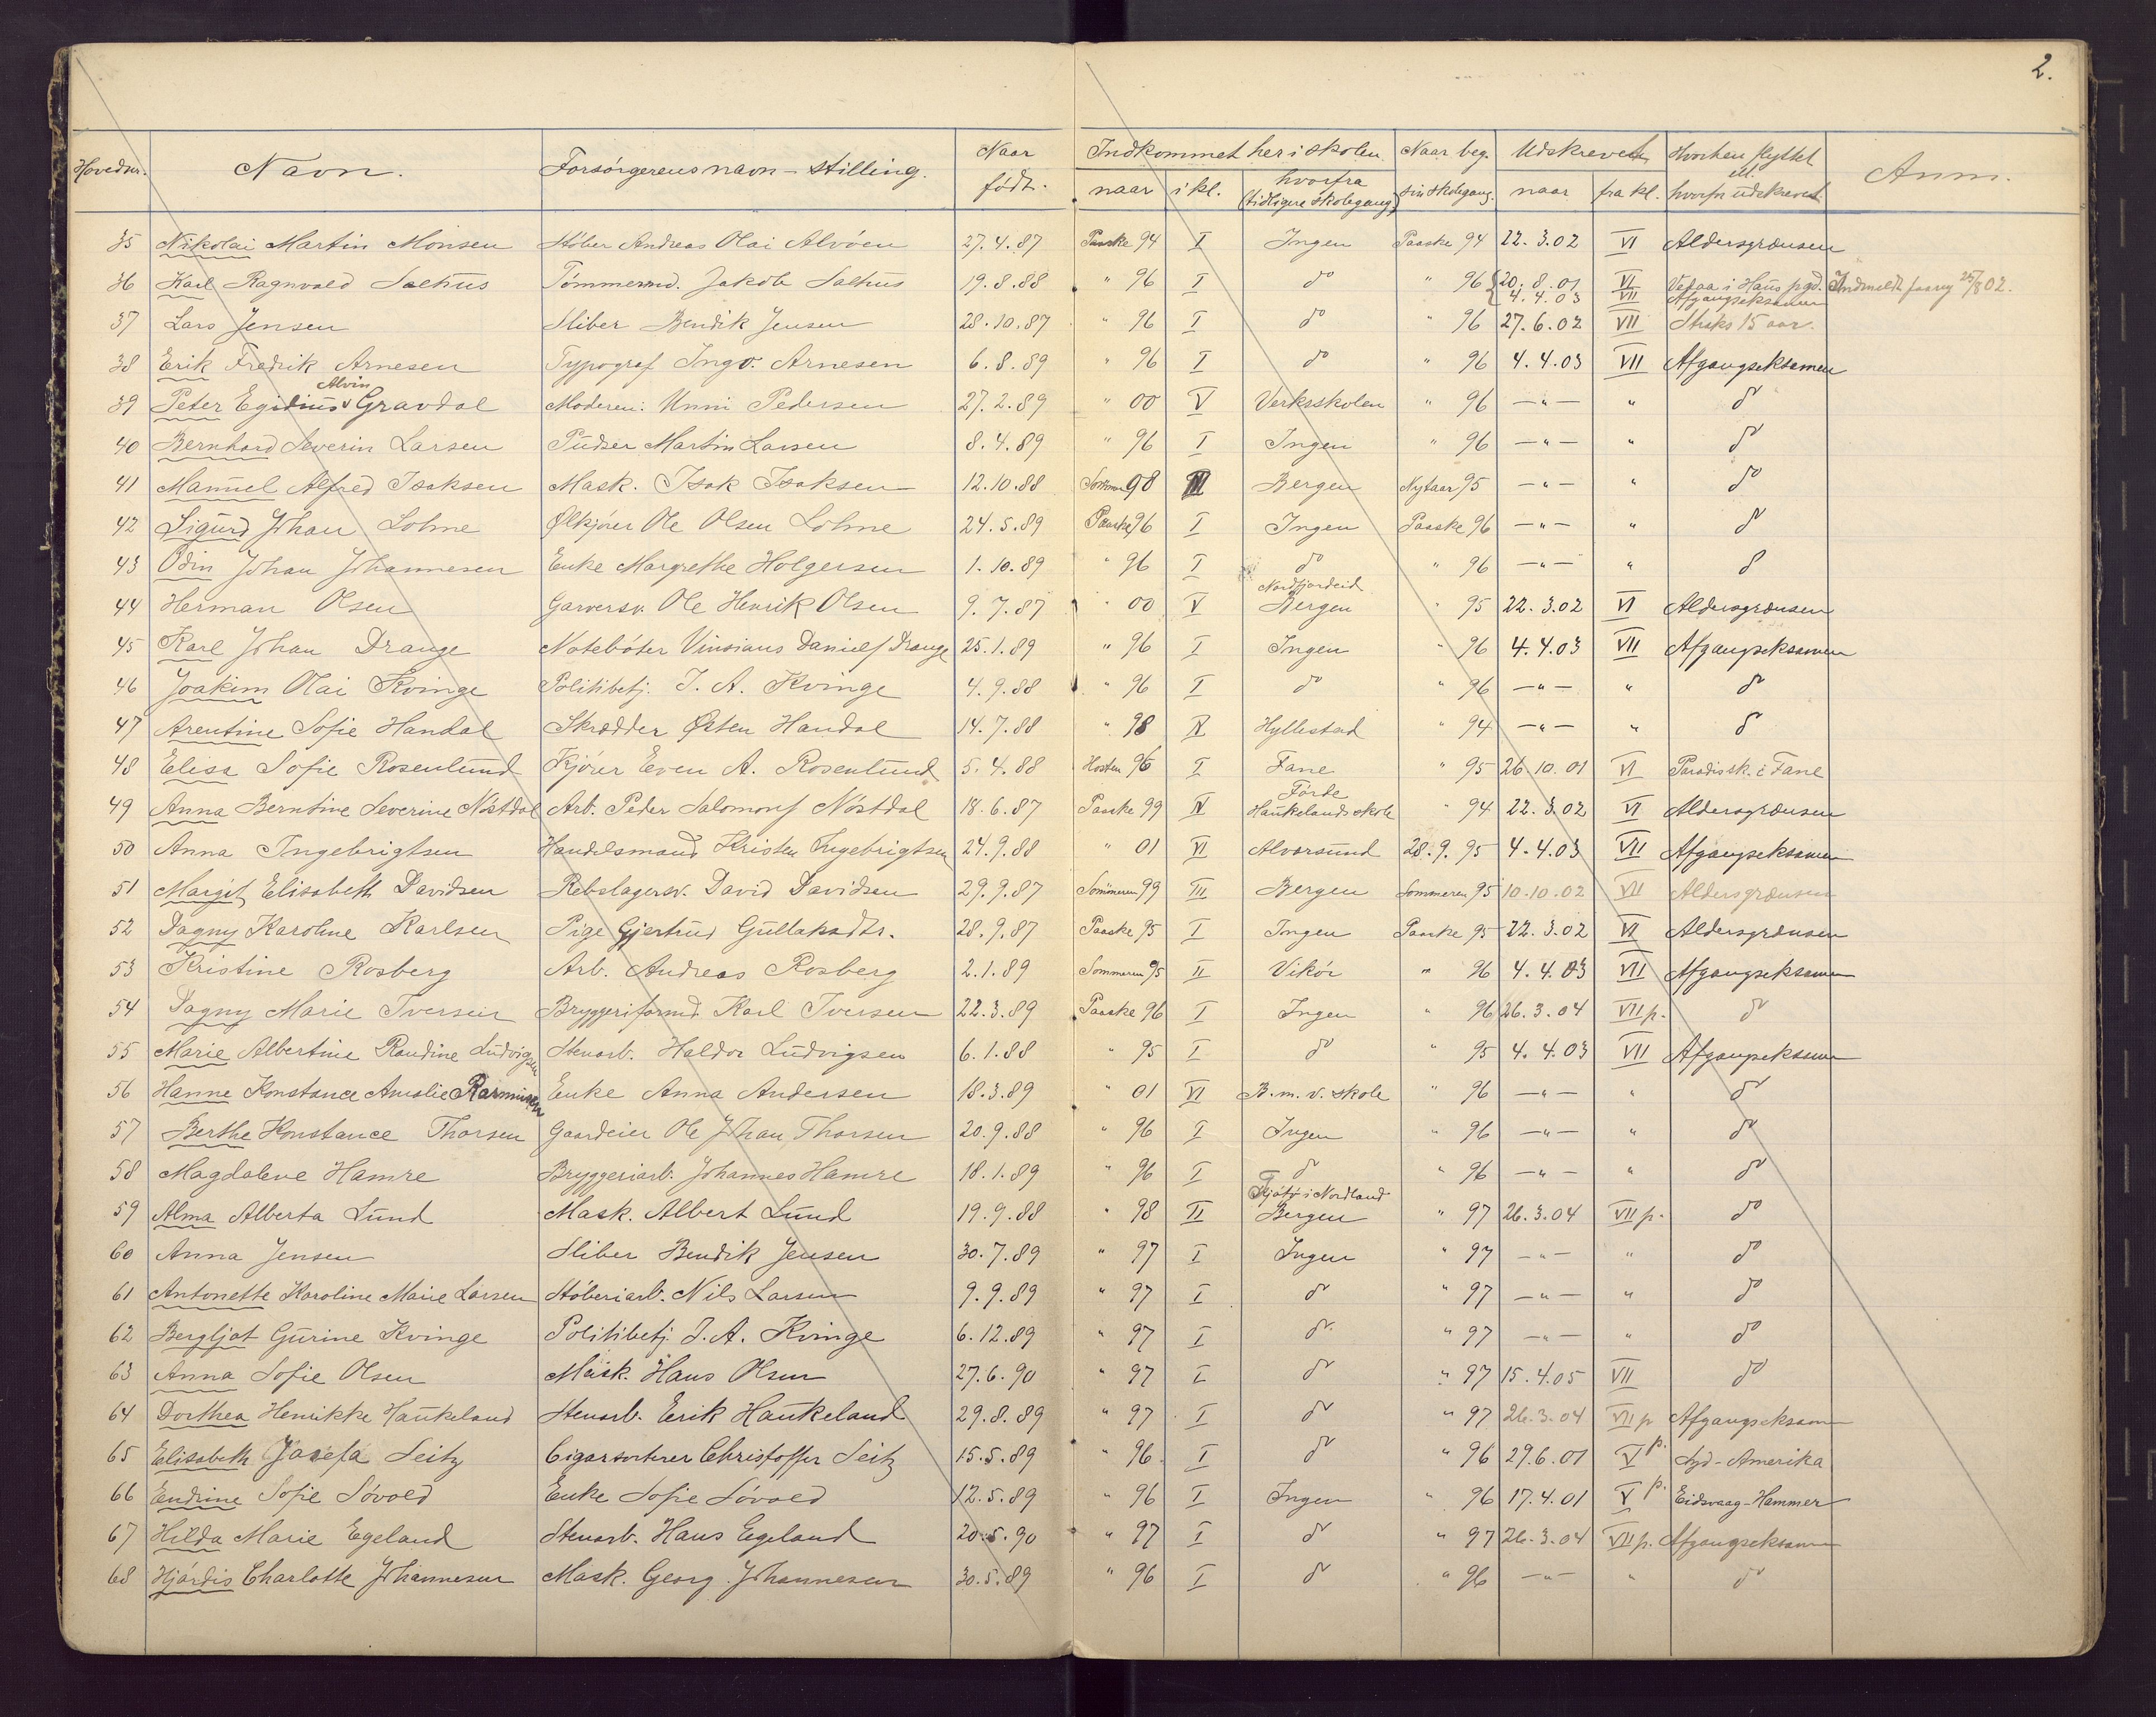 2.
Hovednr. Navn. Forsörgerens navn - stilling. Naar födt. Indkommet her i skolen naar i kl. hvorfra (tidligere skolegang) Naar beg. sin skolegang. Udskrevet naar fra kl. Hvorhen flyttet ell. hvorfor udskrevet. Anm.
35 Nikolai Martin Monsen Stöber Andreas Olai Alvöen 27.4.87 Paaske 94 I Ingen Paaske 94 22.3.02 VI Aldersgrænsen
36 Karl Ragnvald Salhus Tömmermd. Jakob Salhus 19.8.88 " 96 I do " 96 20.8.01 VI i Haus pgd. Indmeldt 25/8 02.
4.4.03 VII Afgangseksamen
37 Lars Jensen Sliber Bendik Jensen 28.10.87 " 96 I do " 96 27.6.02 VII Straks 15 aar.
38 Erik Fredrik Arnesen Typograf Ingv. Arnesen 6.8.89 " 96 I do " 96 4.4.03 VII Afgangseksamen
39 Peter Egidius Alvin Gravdal Moderen: Unni Pedersen 27.2.89 " 00 V Verksskolen " 96 —"— " do
40 Bernhard Severin Larsen Pudser Martin Larsen 8.4.89 " 96 I Ingen " 96 —"— " do
41 Manuel Alfred Isaksen Mask. Isak Isaksen 12.10.88 Sommer 98 III Bergen Nytaar 95 —"— " do
42 Sigurd Johan Lohne Ölkjörer Ole Olsen Lohne 24.5.89 Paaske 96 I Ingen Paaske 96 —"— " do
43 Odin Johan Johannesen Enke Margrethe Holgersen 1.10.89 " 96 I do " 96 —"— " do
44 Herman Olsen Garversv. Ole Henrik Olsen 9.7.87 " 00 V Nordfjordeid Bergen " 95 22.3.02 VI Aldersgrænsen
45 Karl Johan Drange Noteböter Vinsians Daniels Drange 25.1.89 " 96 I Ingen " 96 4.4.03 VII Afgangseksamen
46 Joakim Olai Kvinge Politibetj. J. A. Kvinge 4.9.88 " 96 I do " 96 —"— " do
47 Arentine Sofie Handal Skrædder Östen Handal 14.7.88 " 98 IV Hyllestad " 94 —"— " do
48 Elisa Sofie Rosenlund Kjörer Even A. Rosenlund 5.4.88 Hösten 96 I Fane " 95 26.10.01 VI Paradis sk. i Fane
49 Anna Berntine Severine Nöstdal Arb. Peder Salomons Nöstdal 18.6.87 Paaske 99 IV Förde Haukelands skole " 94 22.3.02 VI Aldersgrænsen
50 Anna Ingebrigtsen Handelsmand Kristen Ingebrigtsen 24.9.88 " 01 VI Alversund 28.9.95 4.4.03 VII Afgangseksamen
51 Margit Elisabeth Davidsen Rebslagersv. David Davidsen 29.9.87 Sommeren 99 III Bergen Sommeren 95 10.10.02 VII Aldersgrænsen
52 Dagny Karoline Karlsen Pige Gjertrud Gullaksdtr. 28.9.87 Paaske 95 I Ingen Paaske 95 22.3.02 VI Aldersgrænsen
53 Kristine Rosberg Arb. Andreas Rosberg 2.1.89 Sommeren 95 II Vikör " 96 4.4.03 VII Afgangseksamen
54 Dagny Marie Iversen Bryggeriformd. Karl Iversen 22.3.89 Paaske 96 I Ingen " 96 26.3.04 VII p. do
55 Marie Albertine Randine Ludvigsen Stenarb. Haldor Ludvigsen 6.1.88 " 95 I do " 95 4.4.03 VII Afgangseksamen
56 Hanne Konstance Amalie Rasmussen Enke Anna Andersen 18.3.89 " 01 VI B.m.v. skole " 96 —"— " do
57 Berthe Konstance Thorsen Gaardeier Ole Johan Thorsen 20.9.88 " 96 I Ingen " 96 —"— " do
58 Magdalene Hamre Bryggeriarb. Johannes Hamre 18.1.89 " 96 I do " 96 —"— " do
59 Alma Alberta Lund Mask. Albert Lund 19.9.88 " 98 II i Nordland Bergen " 97 26.3.04 VII p. do
60 Anna Jensen Sliber Bendik Jensen 30.7.89 " 97 I Ingen " 97 —"— " do
61 Antonette Karoline Marie Larsen Stöberiarb. Nils Larsen 9.9.89 " 97 I do " 97 —"— " do
62 Bergljot Gurine Kvinge Politibetj. J. A. Kvinge 6.12.89 " 97 I do " 97 —"— " do
63 Anna Sofie Olsen Mask. Hans Olsen 27.6.90 " 97 I do " 97 15.4.05 VII do
64 Dorthea Henrikke Haukeland Stenarb. Erik Haukeland 29.8.89 " 97 I do " 97 26.3.04 VII p Afgangseksam
65 Elisabeth Josefa Seitz Cigarsorterer Christoffer Seitz 15.5.89 " 96 I do " 96 29.6.01 V p. Syd-Amerika
66 Endrine Sofie Lövold Enke Sofie Lövold 12.5.89 " 96 I Ingen " 96 17.4.01 V p. Eidsvaag-Hammer
67 Hilda Marie Egeland Stenarb. Hans Egeland 20.5.90 " 97 I do " 97 26.3.04 VII p. Afgangseksamen
68 Hjördis Charlotte Johannesen Mask. Georg Johannesen 30.5.89 " 96 I do " 96 —"— " do